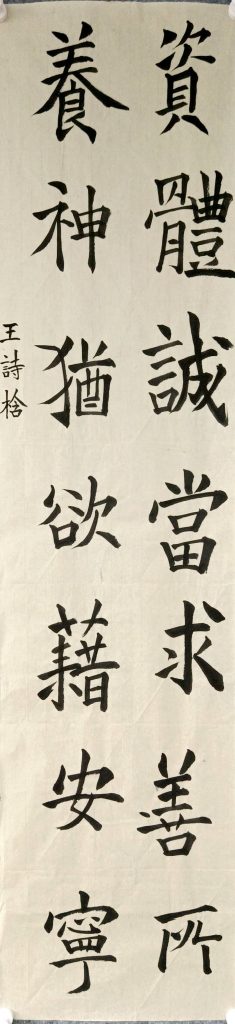 資體誠當求善所
養神猶欲藉安寧
王詩捻